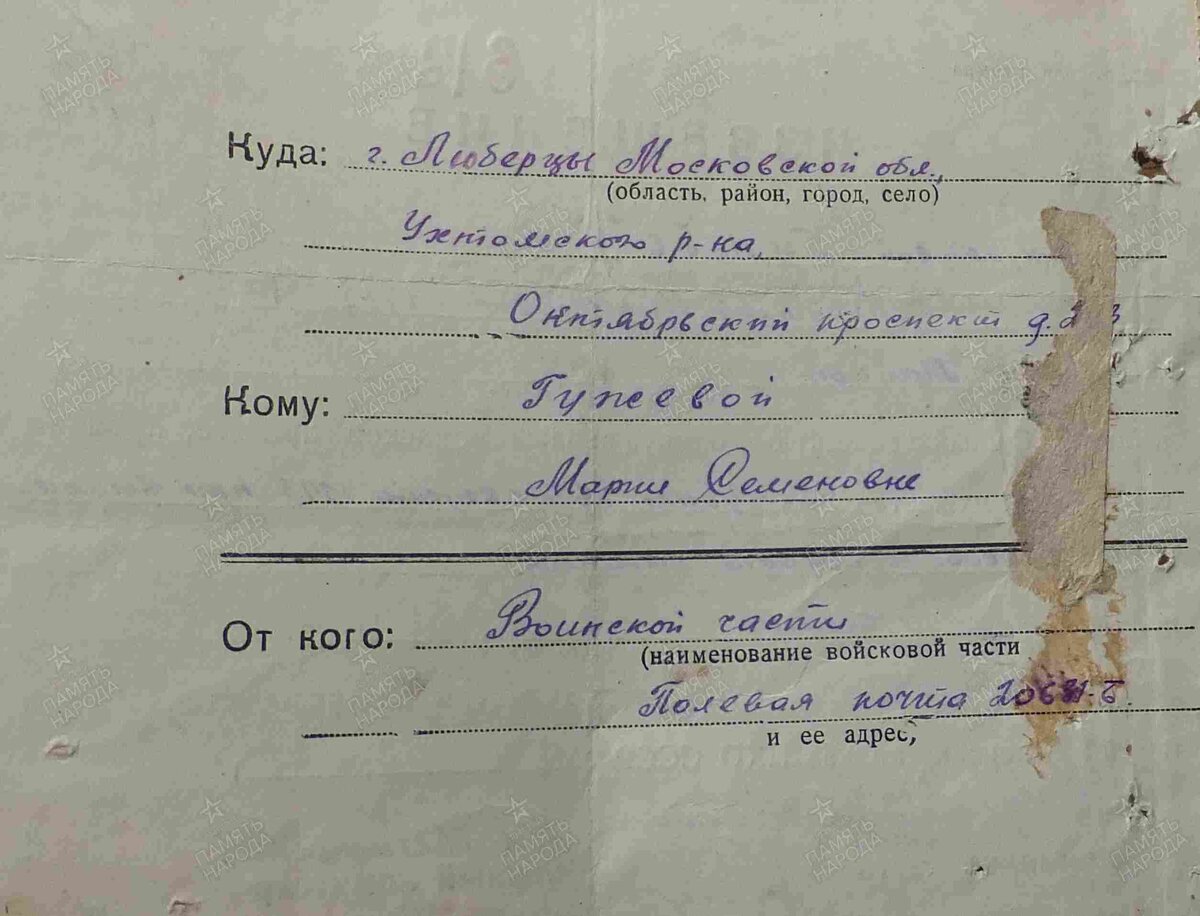 Куда: г. Люберцы Московской обл.,
(область, район, город, село)
Ухтомского р-на,
Октябрьский проспект д.
Кому: Гужевой
Марии Семеновне
От кого: Воинской части
(наименование войсковой части
Полевая почта
и ее адрес,
ПАМЯТЬ НАРОДА